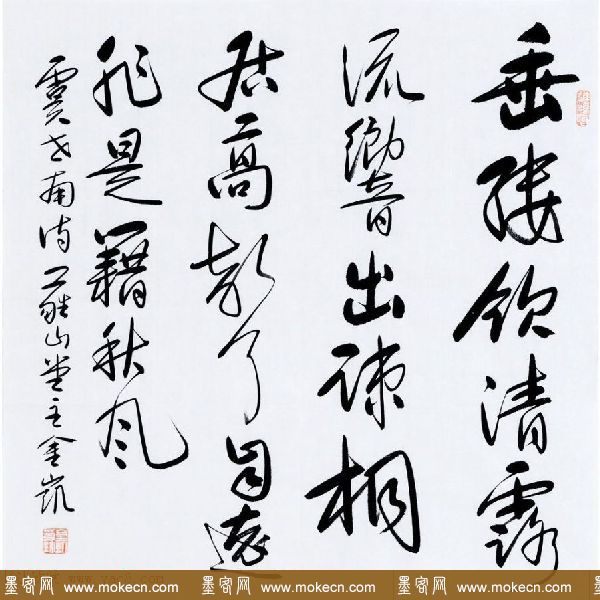 垂緌飲清露
流響出疎桐
居高聲自遠
非是籍秋風
虞世南詩 山堂主金凱
墨客网 www.mokecn.com 墨客网 www.mokecn.com 墨客网 www.mokecn.com